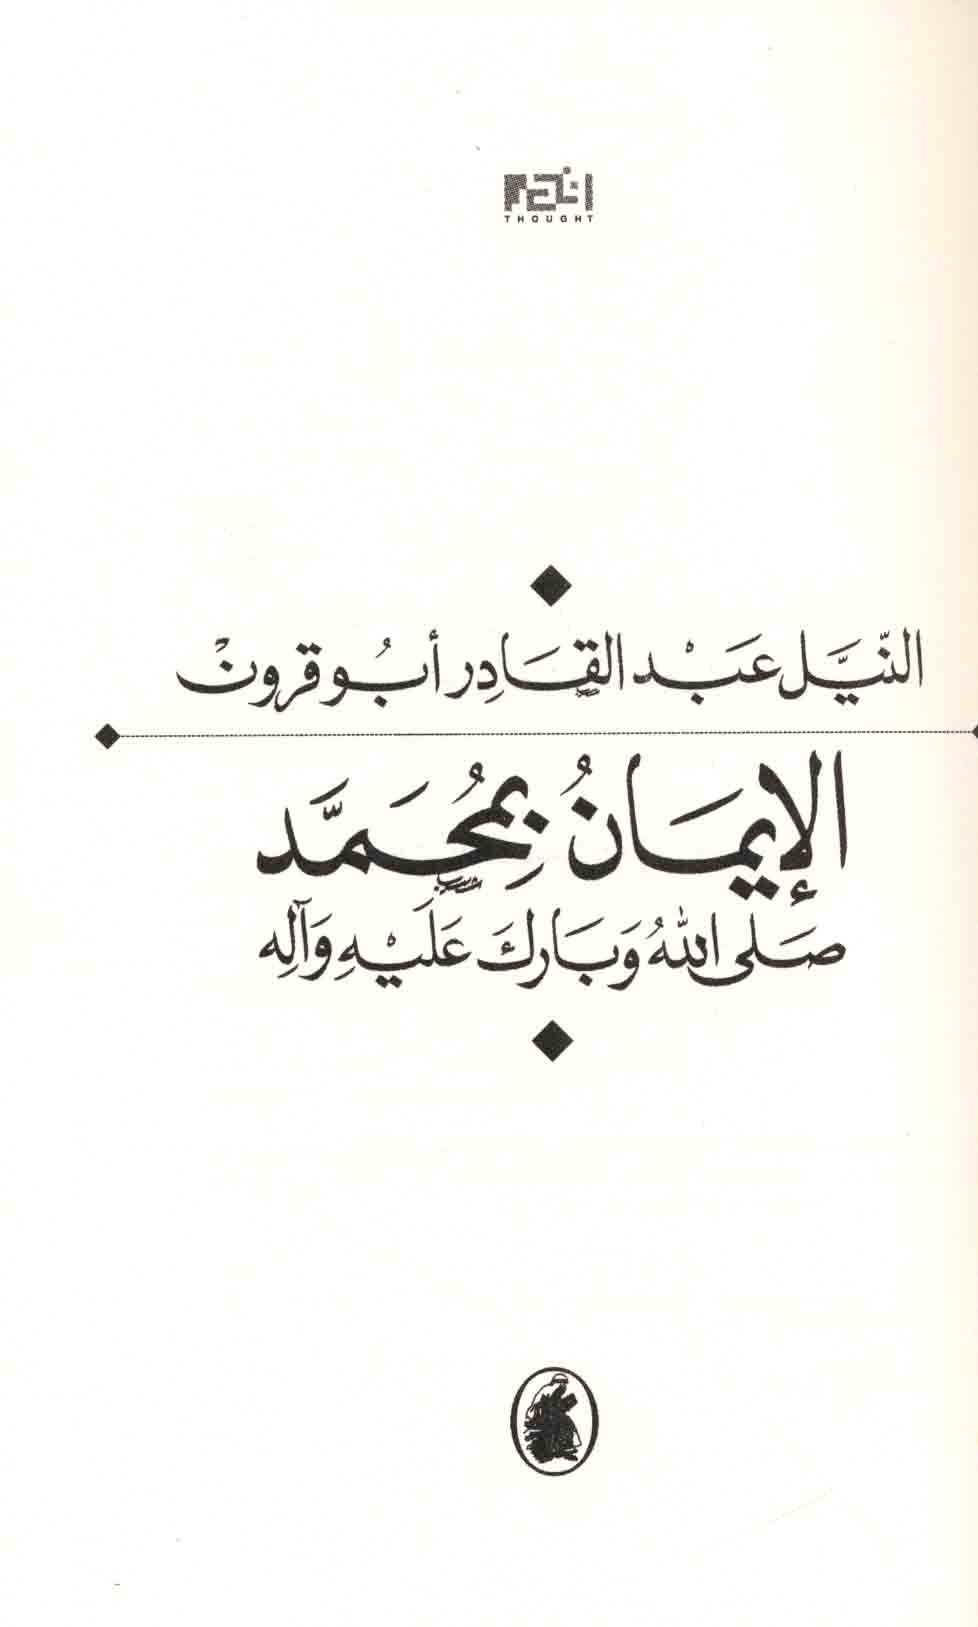 THOUGHT
النَّيَّل عَبْد القَادِر أَبُو قرونْ
الإِيمَانُ بِمُحَمَّد
صَلى اللهُ وَبَارك عَلَيْهِ وَآلِه